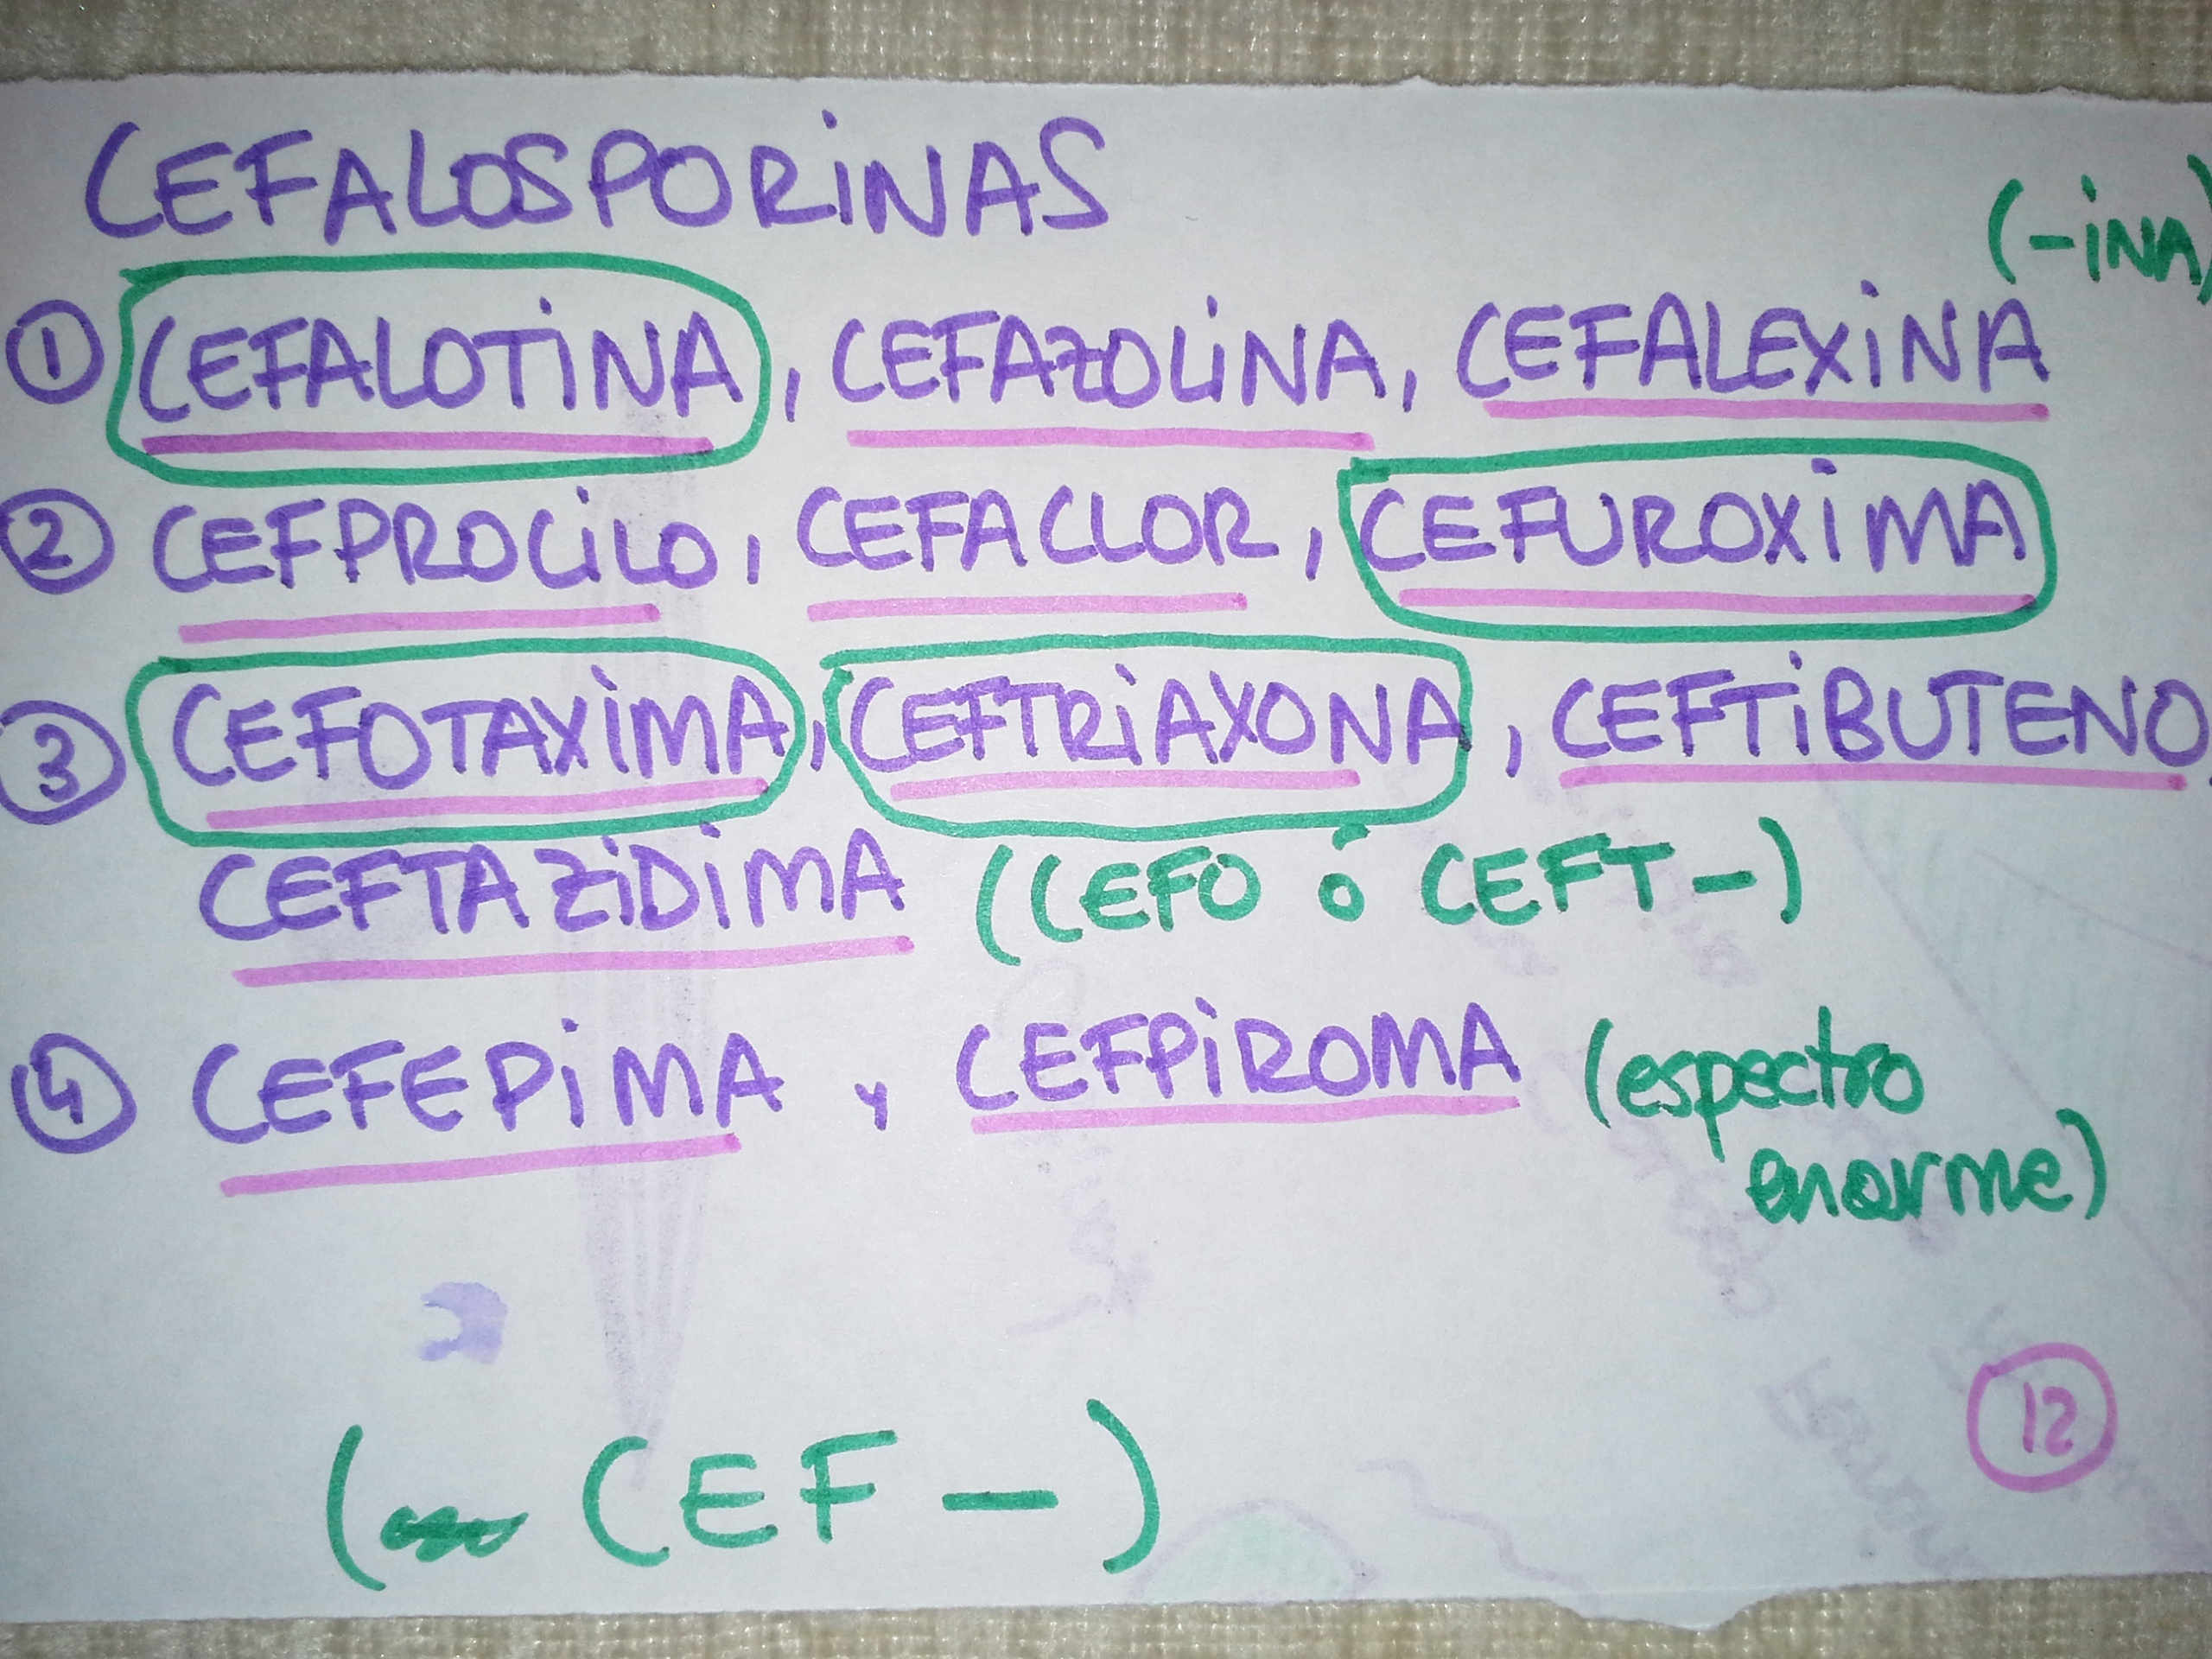 CEFALOSPORINAS
(-iNA)
① CEFALOTiNA, CEFAZOLiNA, CEFALEXiNA
② CEFPROCiLO, CEFACLOR, CEFUROXiMA
③ CEFOTAXiMA, CEFTRiAXONA, CEFTiBUTENO,
CEFTAZiDiMA (CEFO ó CEFT-)
④ CEFEPiMA y CEFPiROMA (espectro
enorme)
12
(CEF-)